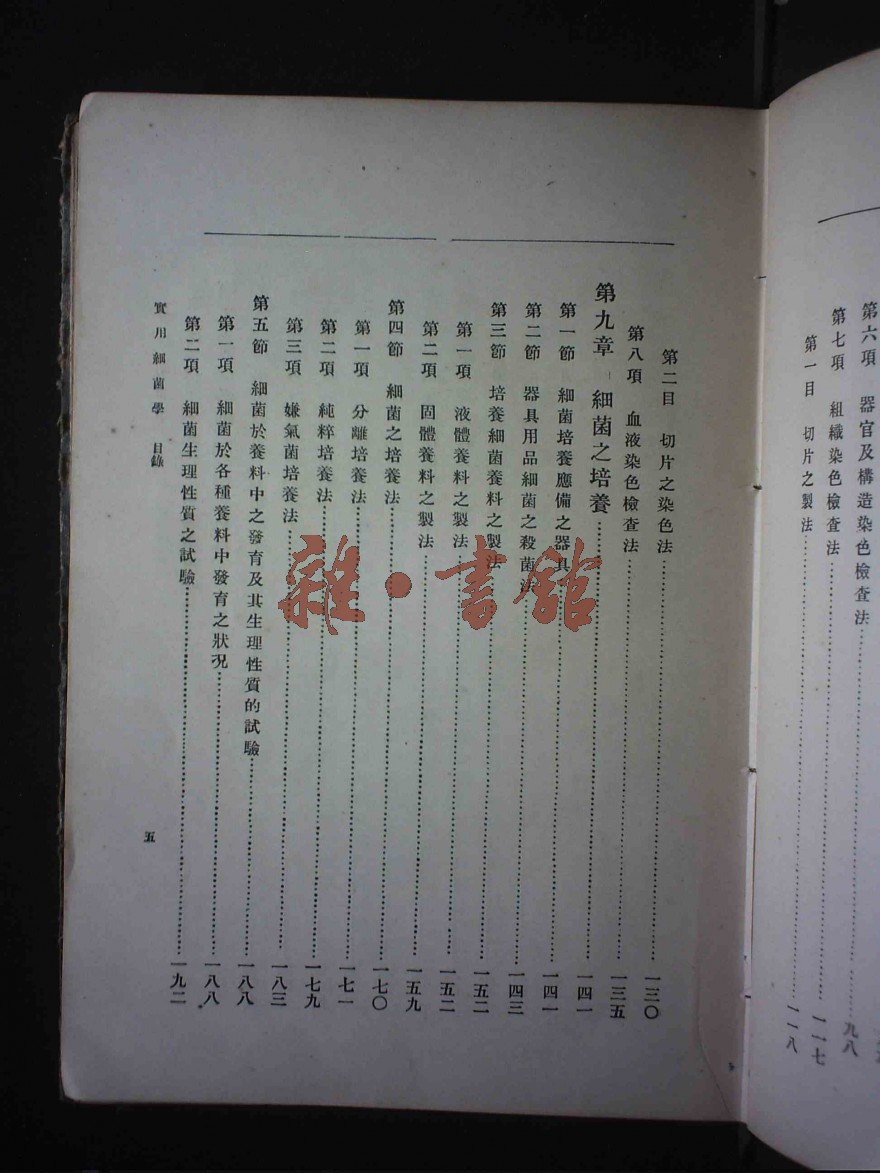 第六項　器官及構造染色檢查法……九八
第七項　組織染色檢查法……一一七
第一目　切片之製法……一一八
第二目　切片之染色法……一三〇
第八項　血液染色檢查法……一三五
第九章　細菌之培養……一四一
第一節　細菌培養應備之器具……一四一
第二節　器具用品細菌之殺菌法……一四三
第三節　培養細菌養料之製法……一五二
第一項　液體養料之製法……一五二
第二項　固體養料之製法……一五九
第四節　細菌之培養法……一七〇
第一項　分離培養法……一七一
第二項　純粹培養法……一七九
第三項　嫌氣菌培養法……一八三
第五節　細菌於養料中之發育及其生理性質的試驗……一八八
第一項　細菌於各種養料中發育之狀況……一八八
第二項　細菌生理性質之試驗……一九二
實用細菌學　目錄
五
雜·書館